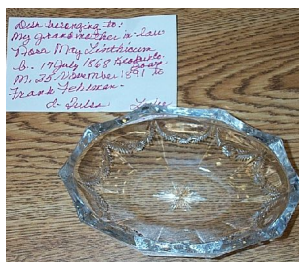 Dish belonging to:
My grandmother in-law
Flora May Linthicum
b. 17 July 1868
M. 25 November 1891 to
Frank
d. Tulsa